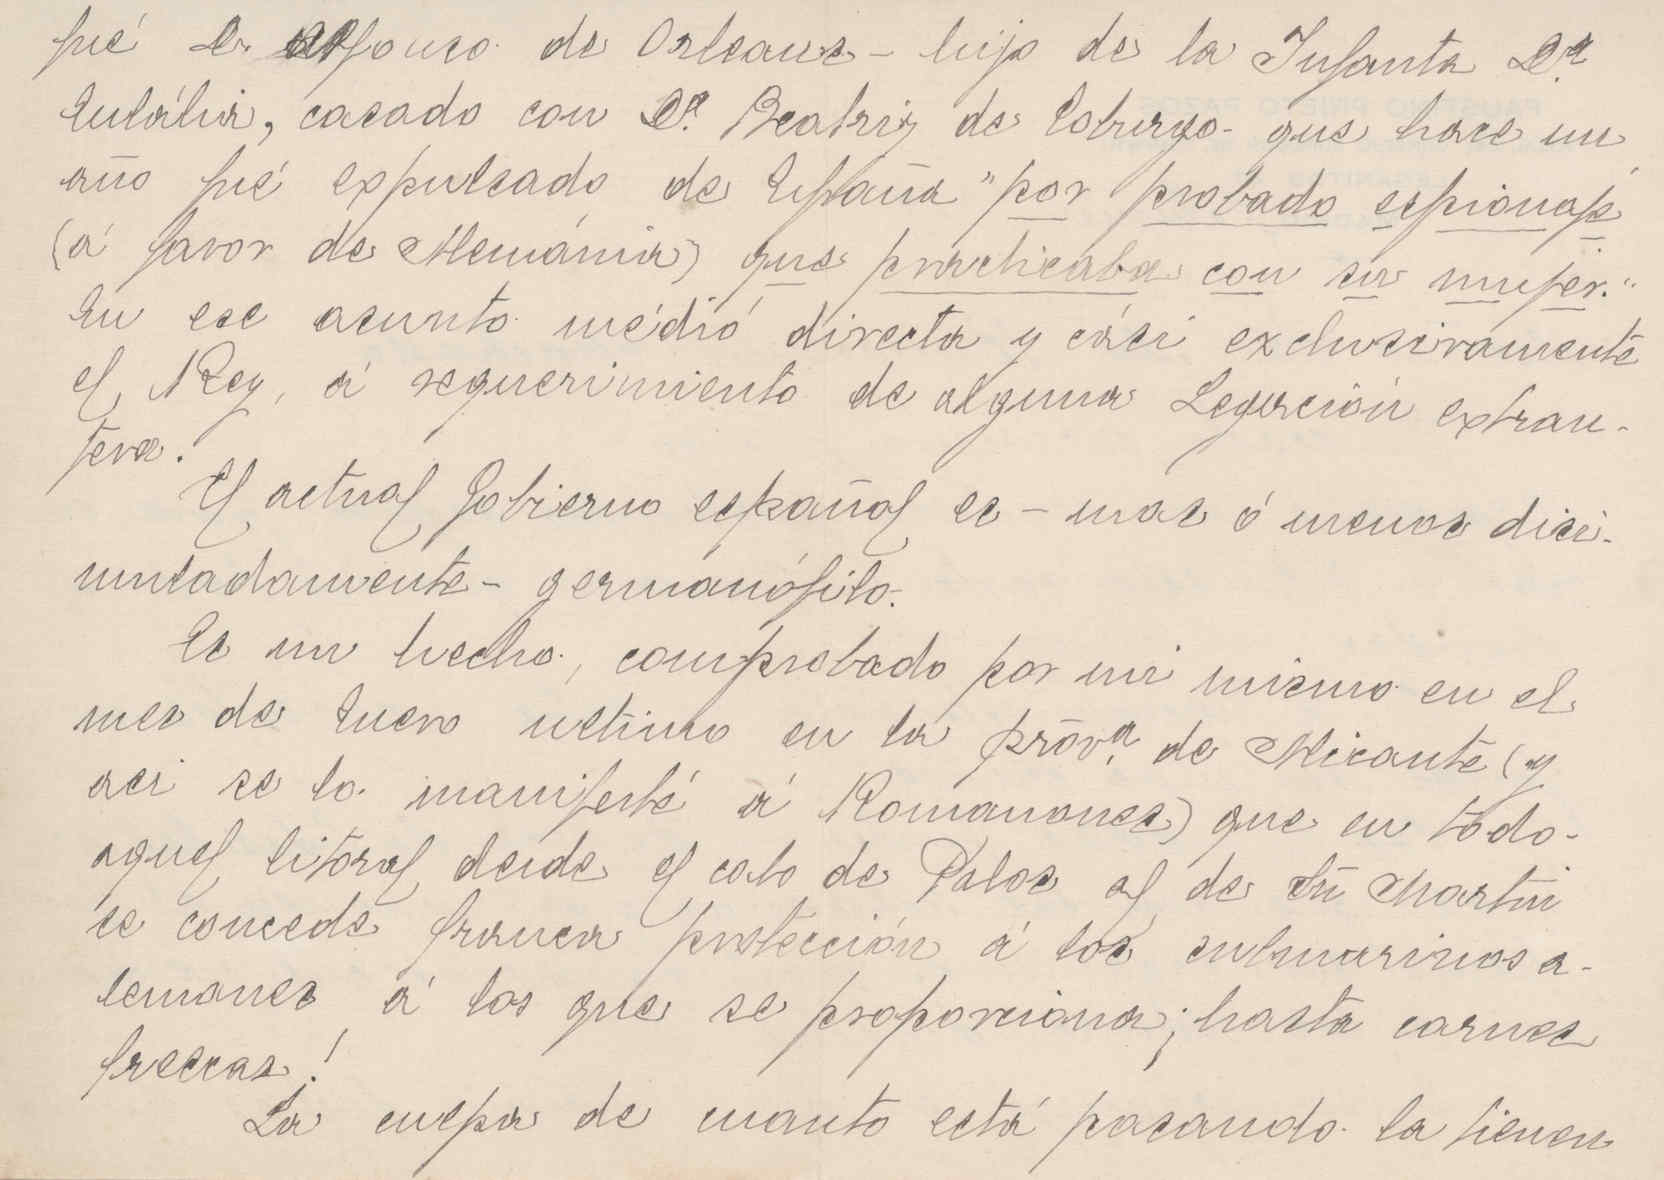 fué D. Alfonso de Orleans – hijo de la Infanta Dª.
Eulália, casado con Dª. Beatriz de Coburgo – que hace un
año fué expulsado de España "por probado espionaje
(á favor de Alemánia) que practicaba con su mujer."
En ese asunto médió directa y cási exclusivamente
el Rey, á requerimiento de alguna Legación extran-
jera.
El actual Gobierno español es – mas ó menos disi-
muladamente – germanófilo.
Es un hecho, comprobado por mi mismo en el
mes de Enero último en la provª. de Alicante (y
asi se lo manifesté á Romanones) que en todo
aquel litoral desde el cabo de Palos al de Sn Martin
se concede franca protección á los submarinos a-
lemanes á los que se proporciona ¡hasta carnes
frescas!
La culpa de cuanto está pasando la tienen